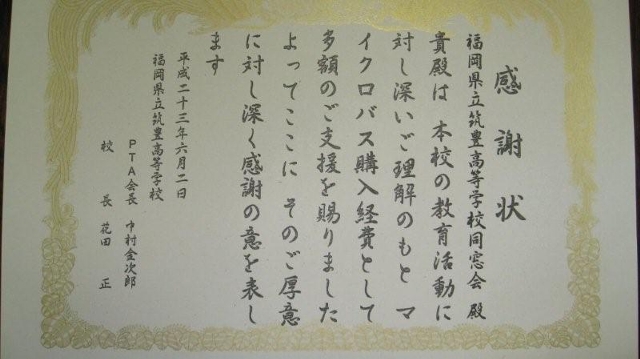 感謝状
福岡県立筑豊高等学校同窓会 殿
貴殿は 本校の教育活動に
対し深いご理解のもと マ
イクロバス購入経費として
多額のご支援を賜りました
よってここに そのご厚意
に対し深く感謝の意を表し
ます
平成二十三年六月二日
福岡県立筑豊高等学校
PTA会長 中村金次郎
校長 花田 正